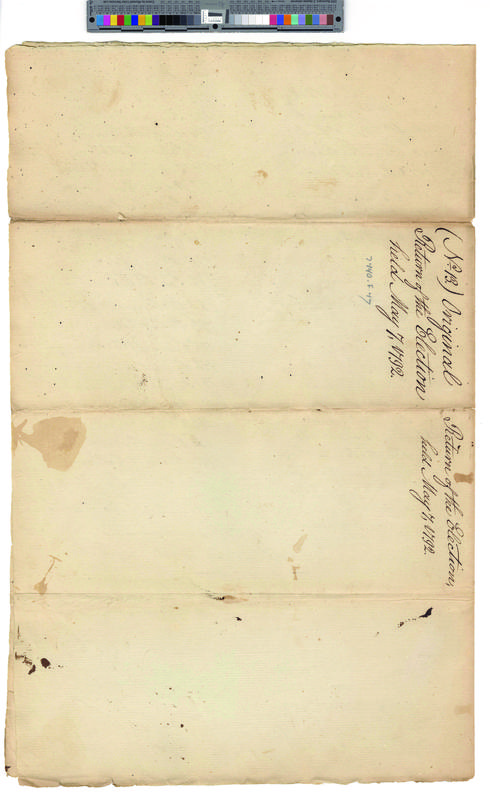 (No. 13) Original
Return of the Election
held May 7, 1792.
7440.F.47
Return of the Election,
held May 7, 1792.